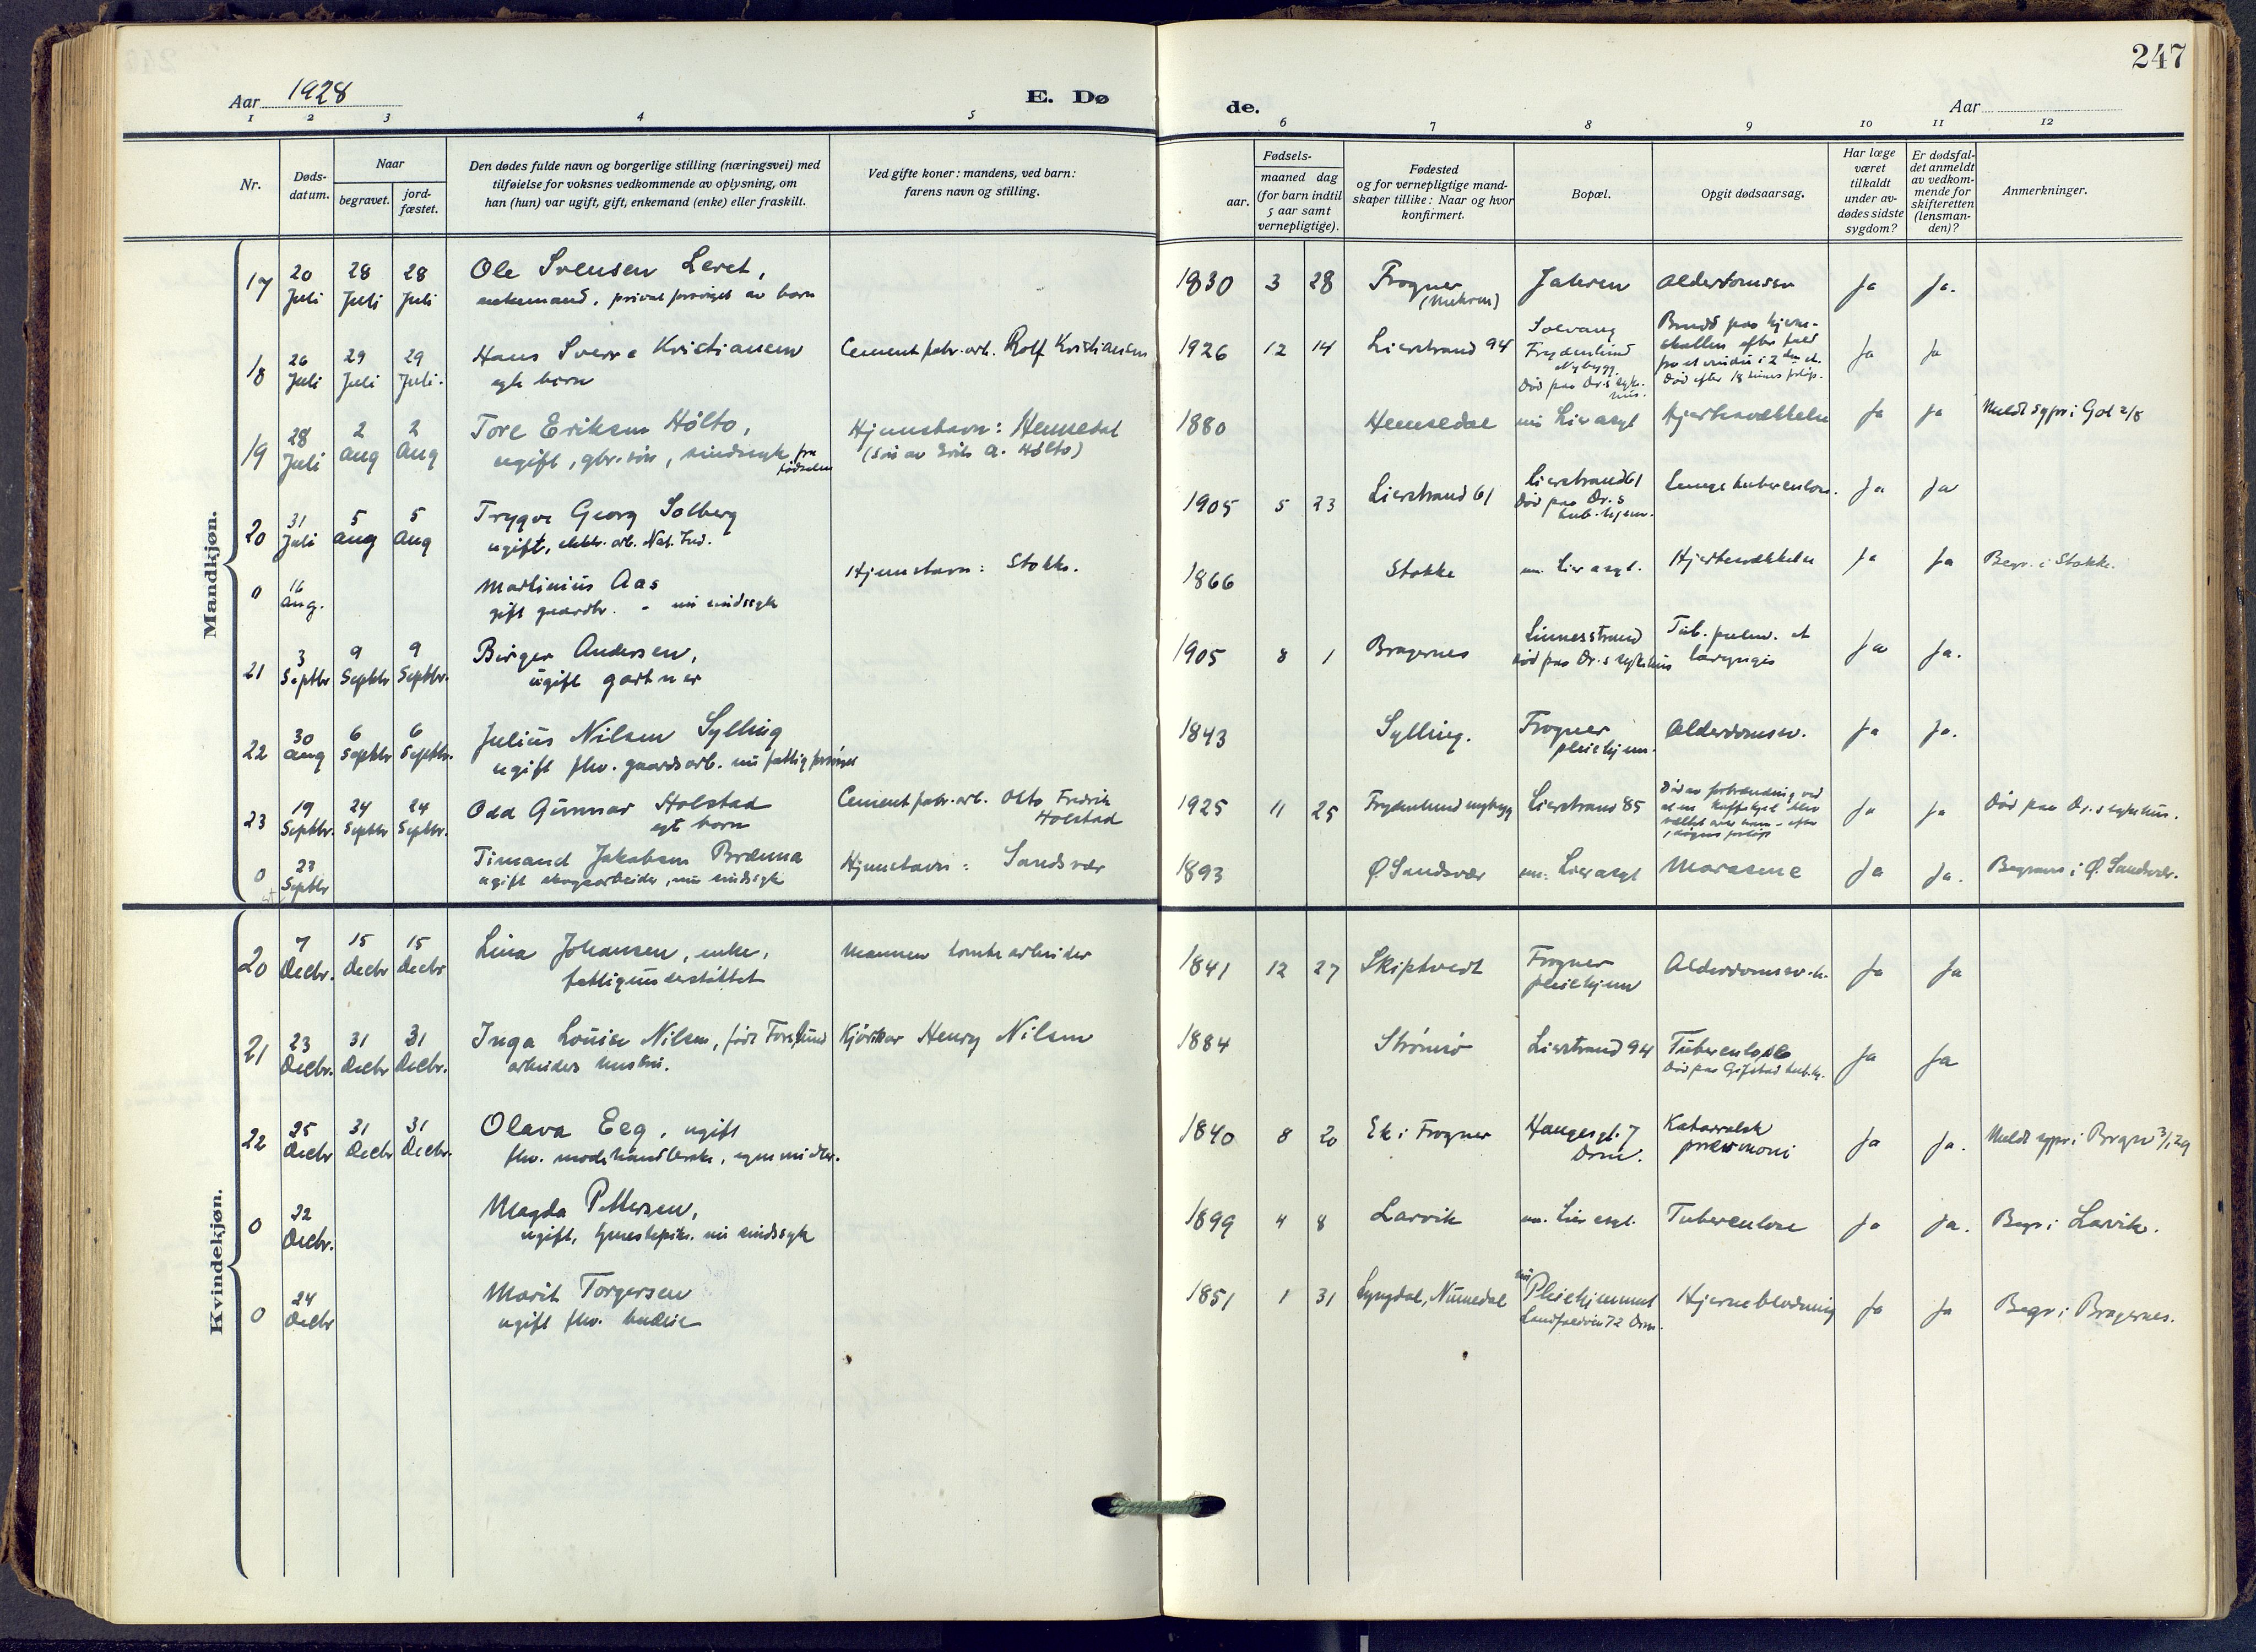 247
Aar 1928
E. Dø
de.
Aar
1 2 3 4 5
6 7 8 9 10 11 12
Nr.
Døds-
datum.
Naar
begravet.
jord-
fæstet.
Den dødes fulde navn og borgerlige stilling (næringsvei) med
tilføielse for voksnes vedkommende av oplysning, om
han (hun) var ugift, gift, enkemand (enke) eller fraskilt.
Ved gifte koner: mandens, ved barn:
farens navn og stilling.
Fødsels-
aar.
maaned dag
(for barn indtil
5 aar samt
vernepligtige).
Fødested
og for vernepligtige mand-
skaper tillike: Naar og hvor
konfirmert.
Bopæl.
Opgit dødsaarsag.
Har læge
været
tilkaldt
under av-
dødes sidste
sygdom?
Er dødsfal-
det anmeldt
av vedkom-
mende for
skifteretten
(lensman-
den)?
Anmerkninger.
Mandkjøn.
17 20 Juli 28 Juli 28 Juli Ole Svensen Leret, 1830 3 28 Frogner Jahren Alderdomssv. Ja Ja.
enkemand, privat forsørget av barn
18 26 Juli 29 Juli 29 Juli. Hans Sverre Kristiansen Cementfabr.arb. Rolf Kristiansen 1926 12 14 Lierstrand 94 Solvang
egte barn Frydenlund
Nybygg.
Død paa Dr.s syke-
hus.
Brudd paa hjerne-
skallen efter fald
fra et vindu i 2den et.
Død efter 18 timers forløp.
Ja Ja
19 28 Juli 2 Aug 2 Aug Tore Eriksen Hølto, Hjemstavn: Hemsedal 1880 Hemsedal nu Lier asyl Hjertesvækkelse Ja Ja Meldt sypr i Gol 2/8
ugift, gbr.søn, sindssyk fra fødselen (Søn av Erik A. Hølto)
20 31 Juli 5 Aug 5 Aug Trygve Georg Solberg 1905 5 23 Lierstrand 61 Lierstrand 61 Lungetuberculose. Ja Ja
ugift, elektr. arb. Nat. Ind. Død paa Dr.s
tub.hjem.
0 16 Aug. Martinius Aas Hjemstavn: Stokke. 1866 Stokke nu. Lier asyl. Hjertesvækkelse Ja Ja Begr. i Stokke.
gift gaardbr. - nu sindssyk
21 3 Septbr 9 Septbr 9 Septbr. Birger Andersen, 1905 8 1 Bragernes Linnesstrand Tub. pulm. et Ja Ja.
ugift gartner død paa Dr.s sykehus laryngis
22 30 Aug 6 Septbr 6 Septbr. Julius Nilsen Sylling 1843 Sylling. Frogner Alderdomssv. Ja Ja.
ugift fhv. gaardsarb. nu fattigforsørget pleiehjem.
23 19 Septbr. 24 Septbr 24 Septbr. Odd Gunnar Holstad Cementfabr.arb. Otto Fredrik 1925 11 25 Frydenlund nybygg Lierstrand 85
egte barn Holstad
Død av forbrænding ved
at en kaffekjel blev
væltet over ham - efter
1 døgns forløp
Ja Ja Død paa Dr.s sykehus.
0 23 Septbr Timand Jakobsen Brænna Hjemstavn: Sandsvær 1893 Ø. Sandsvær nu. Lier asyl Marasme Ja Ja. Begraves i Ø. Sandsvær.
ugift skogsarbeider, nu sindssyk
Kvindekjøn.
20 7 Decbr. 15 Decbr 15 Decbr Lina Johansen, enke, Mannen tomtearbeider 1841 12 27 Skiptvedt Frogner Alderdomssv.h. Ja Ja
fattigunderstøttet pleiehjem
21 23 Decbr. 31 Decbr 31 Decbr. Inga Louise Nilsen, født Forslund Kjørekar Henry Nilsen 1884 Strømsø Lierstrand 94 Tuberculose Ja Ja
arbeiders hustru. Død paa Gifstad tub.hj.
22 25 Decbr 31 Decbr 31 Decbr. Olava Eeg, ugift 1840 8 20 Ek i Frogner Haugesgt. 7 Katarralsk Ja Ja. Meldt sypr i Bragn 3/1 29
fhv. modehandlerske, egne midler. Drm. pneumoni
0 22 Decbr. Magda Pettersen, 1899 4 8 Larvik nu. Lier asyl. Tuberculose Ja Ja. Begr i Larvik.
ugift, tjenestepike. nu sindssyk
0 24 Decbr Marit Torgersen 1851 1 31 Lyngdal, Numedal nu Pleiehjemmet Hjerneblødning Ja Ja Begr i Bragernes.
ugift fhv. budeie Landfaldøen 72 Drm.